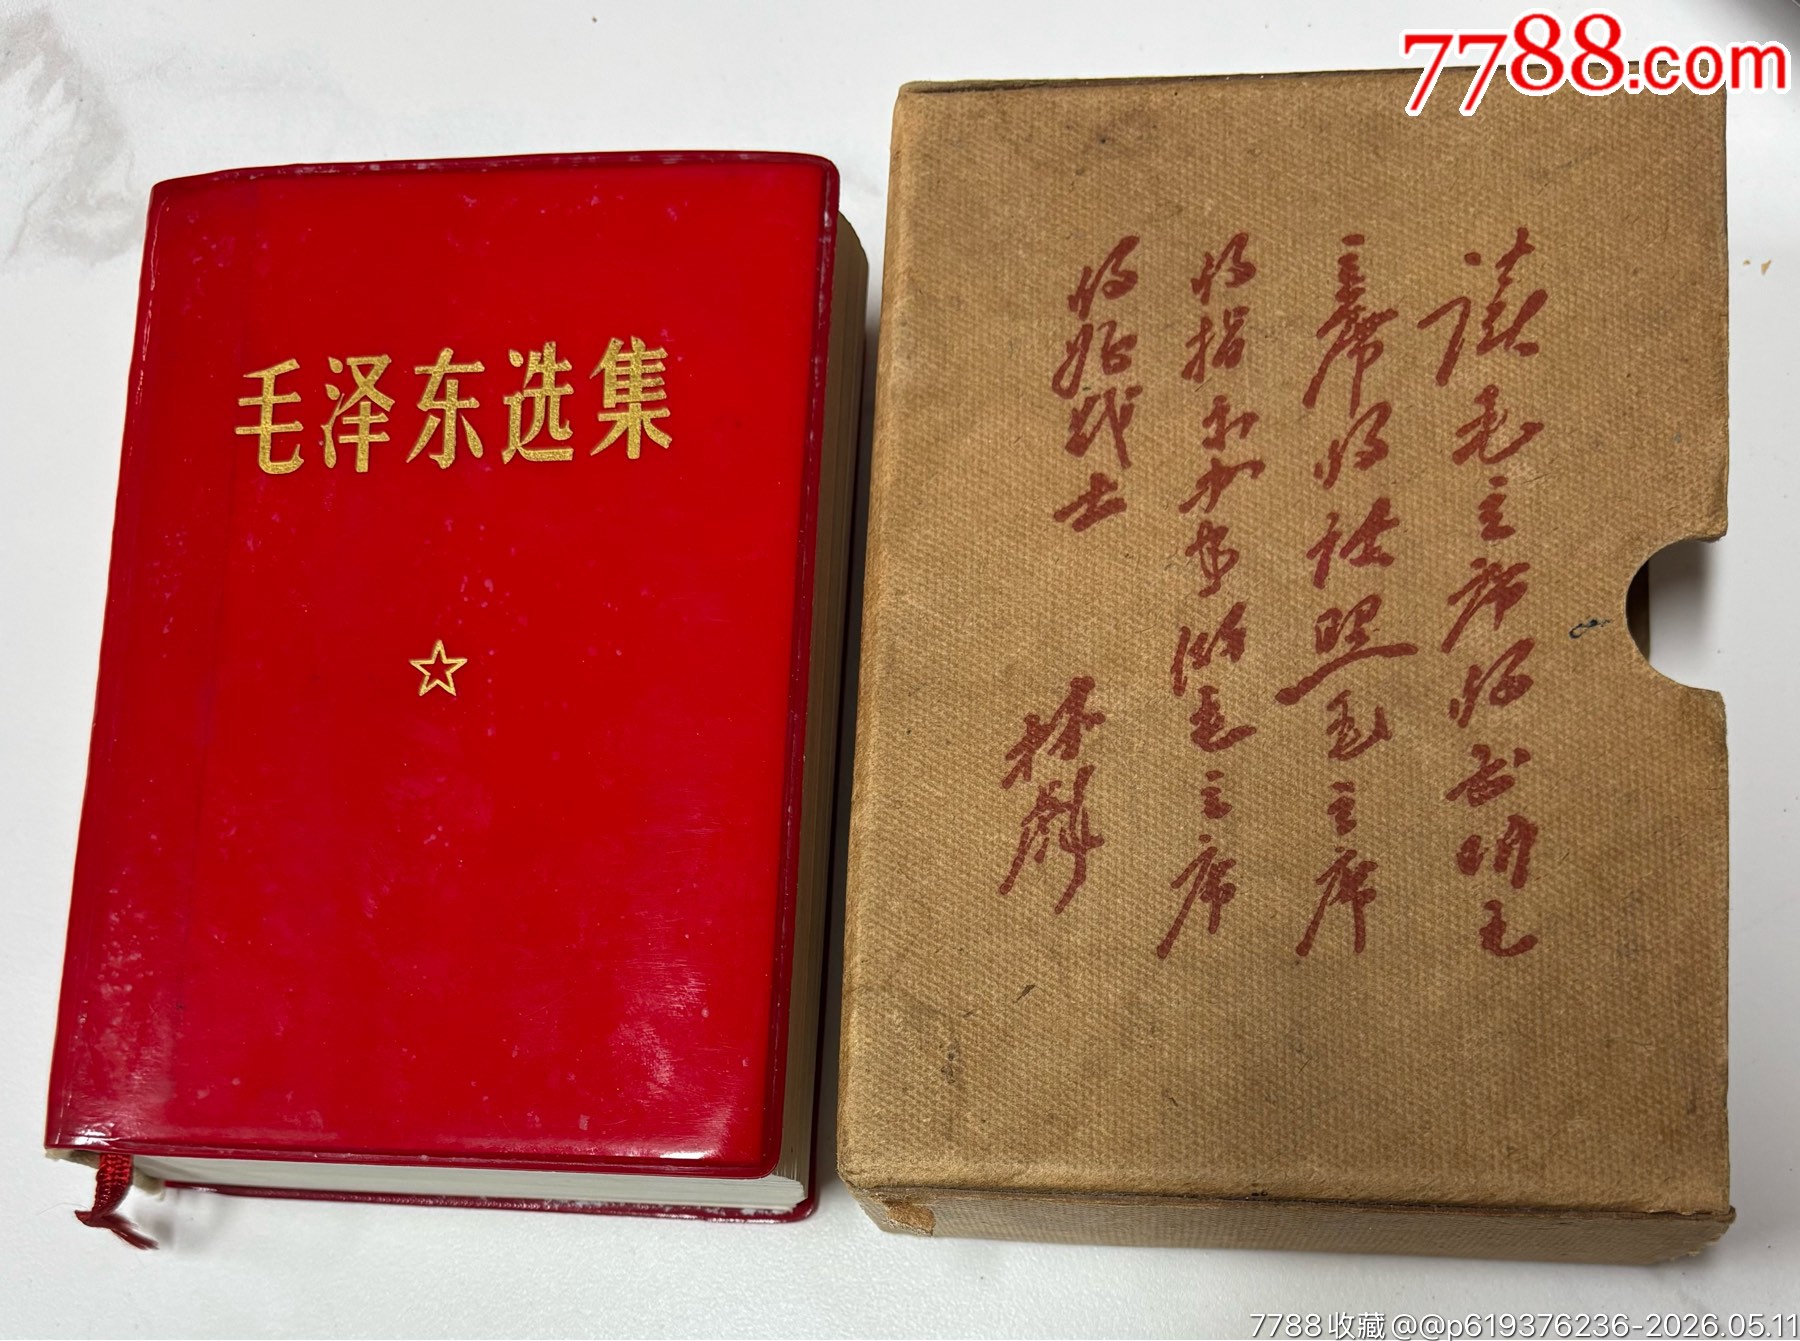 7788.com
毛泽东选集
读毛主席的书听毛
主席的话照毛主席
的指示办事做毛主席
的好战士
林彪
7788收藏@@p619376236-2026.05.11